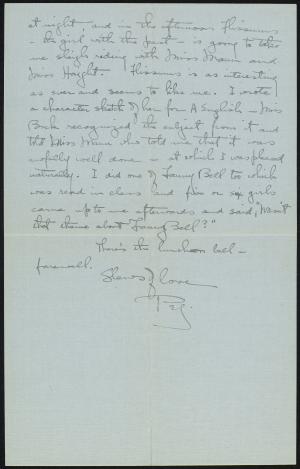 at night and in the afternoon Flissmus
- the girl with the past - is going to take
me sleigh riding with Miss Mann and
Miss Haight. Flissmus is as interesting
as ever and seems to like me. I wrote
a character sketch of her for A English - Miss
recognized the subject from it and
told Miss Mann who told me that it was
awfully well done - at which I was pleased
naturally. I did one of Fanny Bell too which
was read in class and five or six girls
came up to me afterwards and said, "Wasn't
that theme about Fanny Bell?"
There's the luncheon bell -
farewell.
Slews of love
Peg.